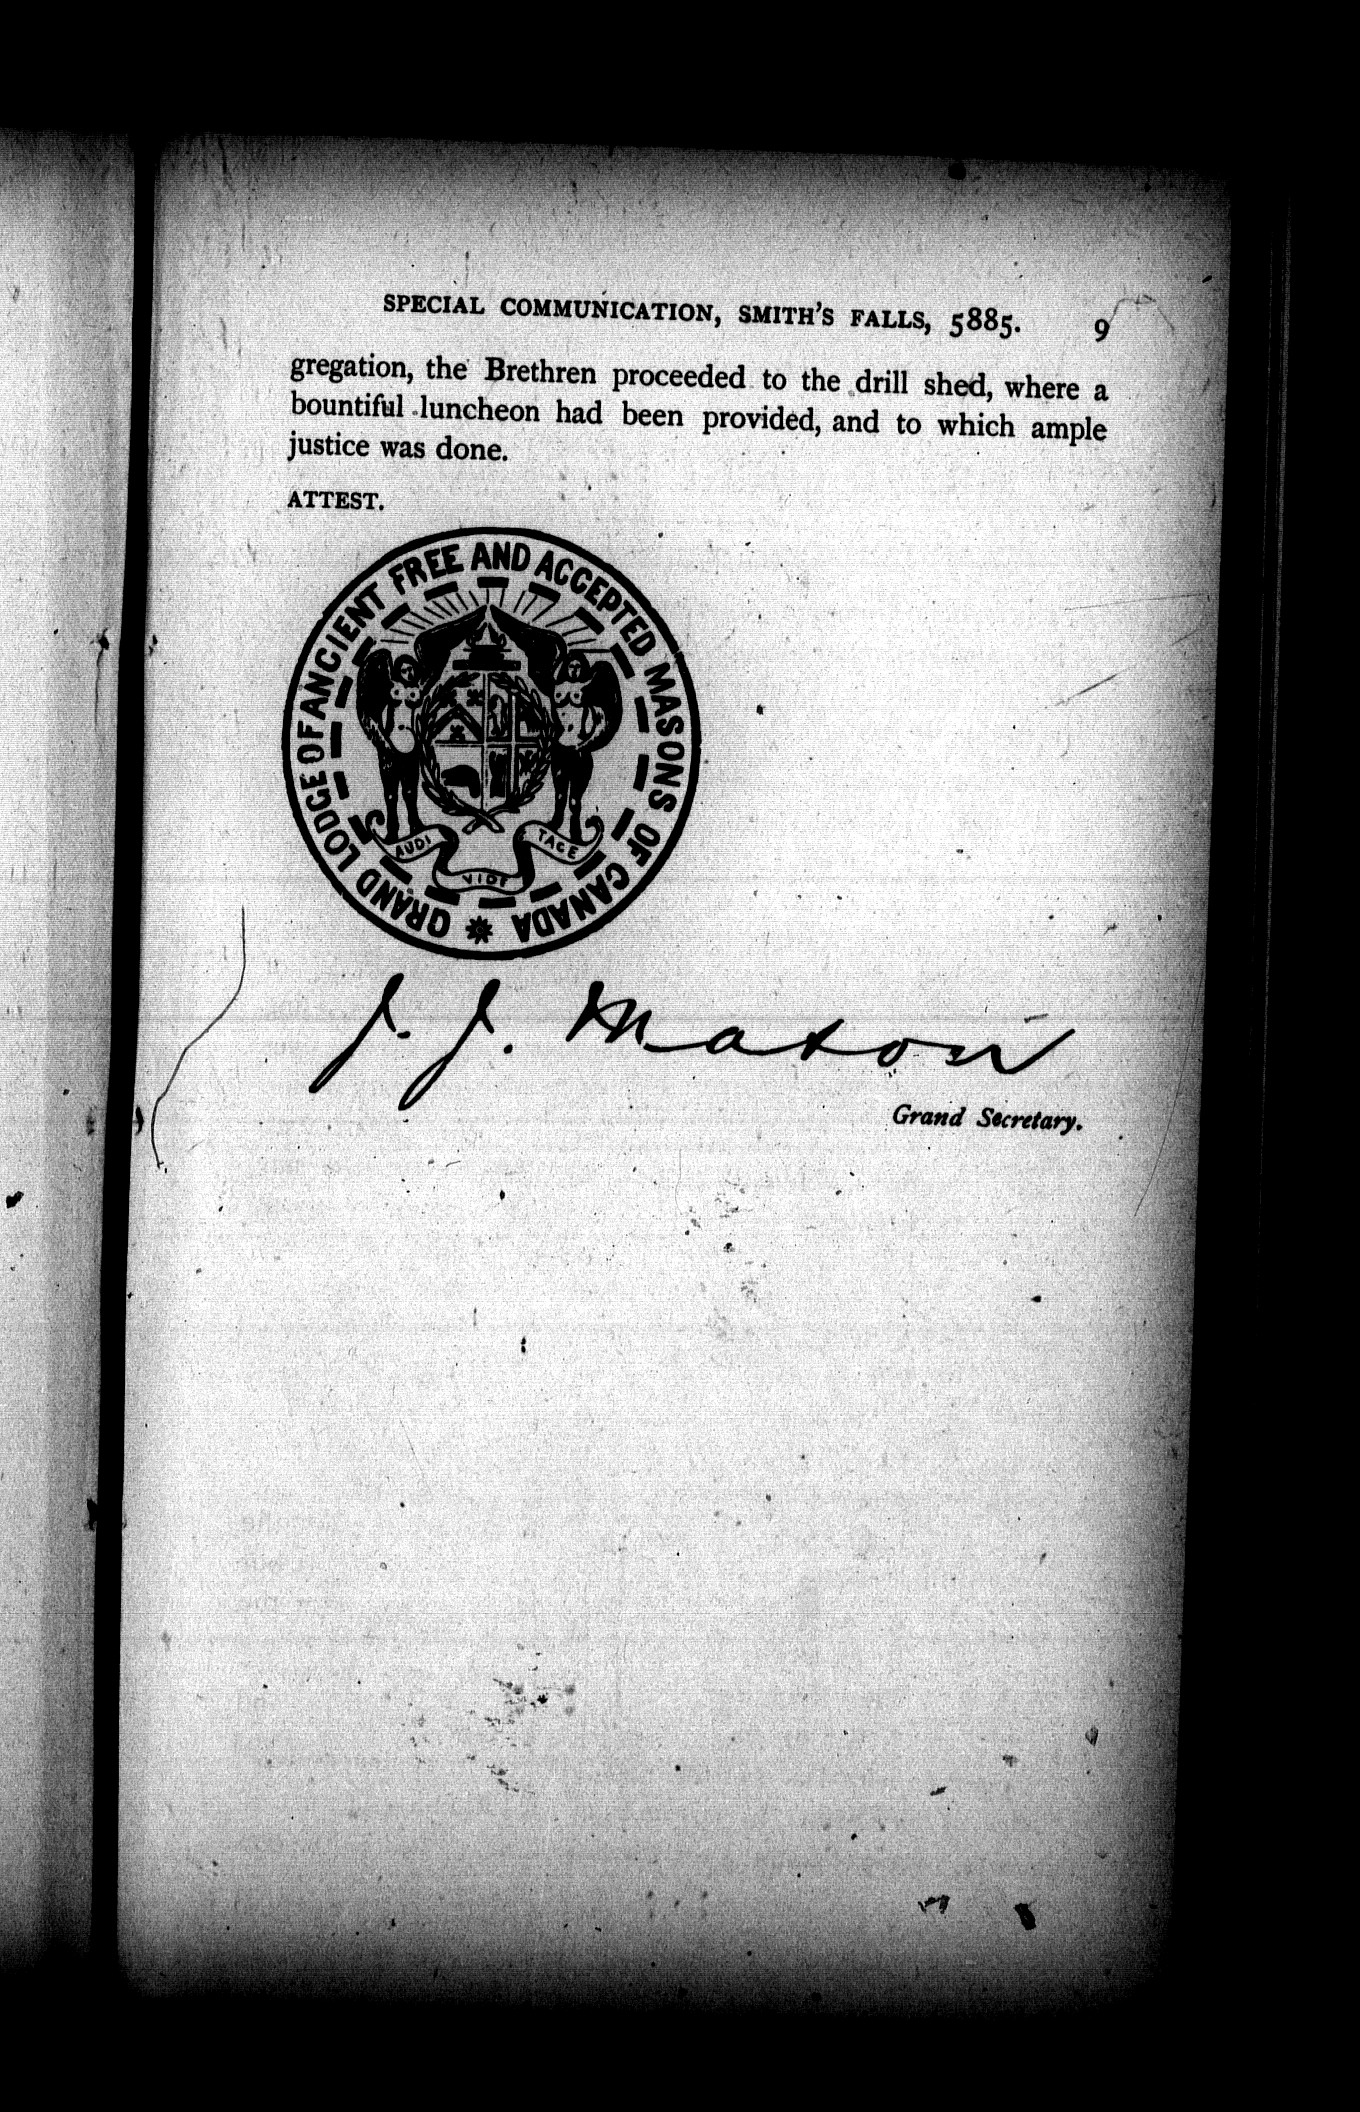 SPECIAL COMMUNICATION, SMITH'S FALLS, 5885. 9
gregation, the Brethren proceeded to the drill shed, where a
bountiful luncheon had been provided, and to which ample
justice was done.
ATTEST.
GRAND LODGE OF ANCIENT FREE AND ACCEPTED MASONS OF CANADA
AUDI VIDE TACE
J. J. Mason
Grand Secretary.